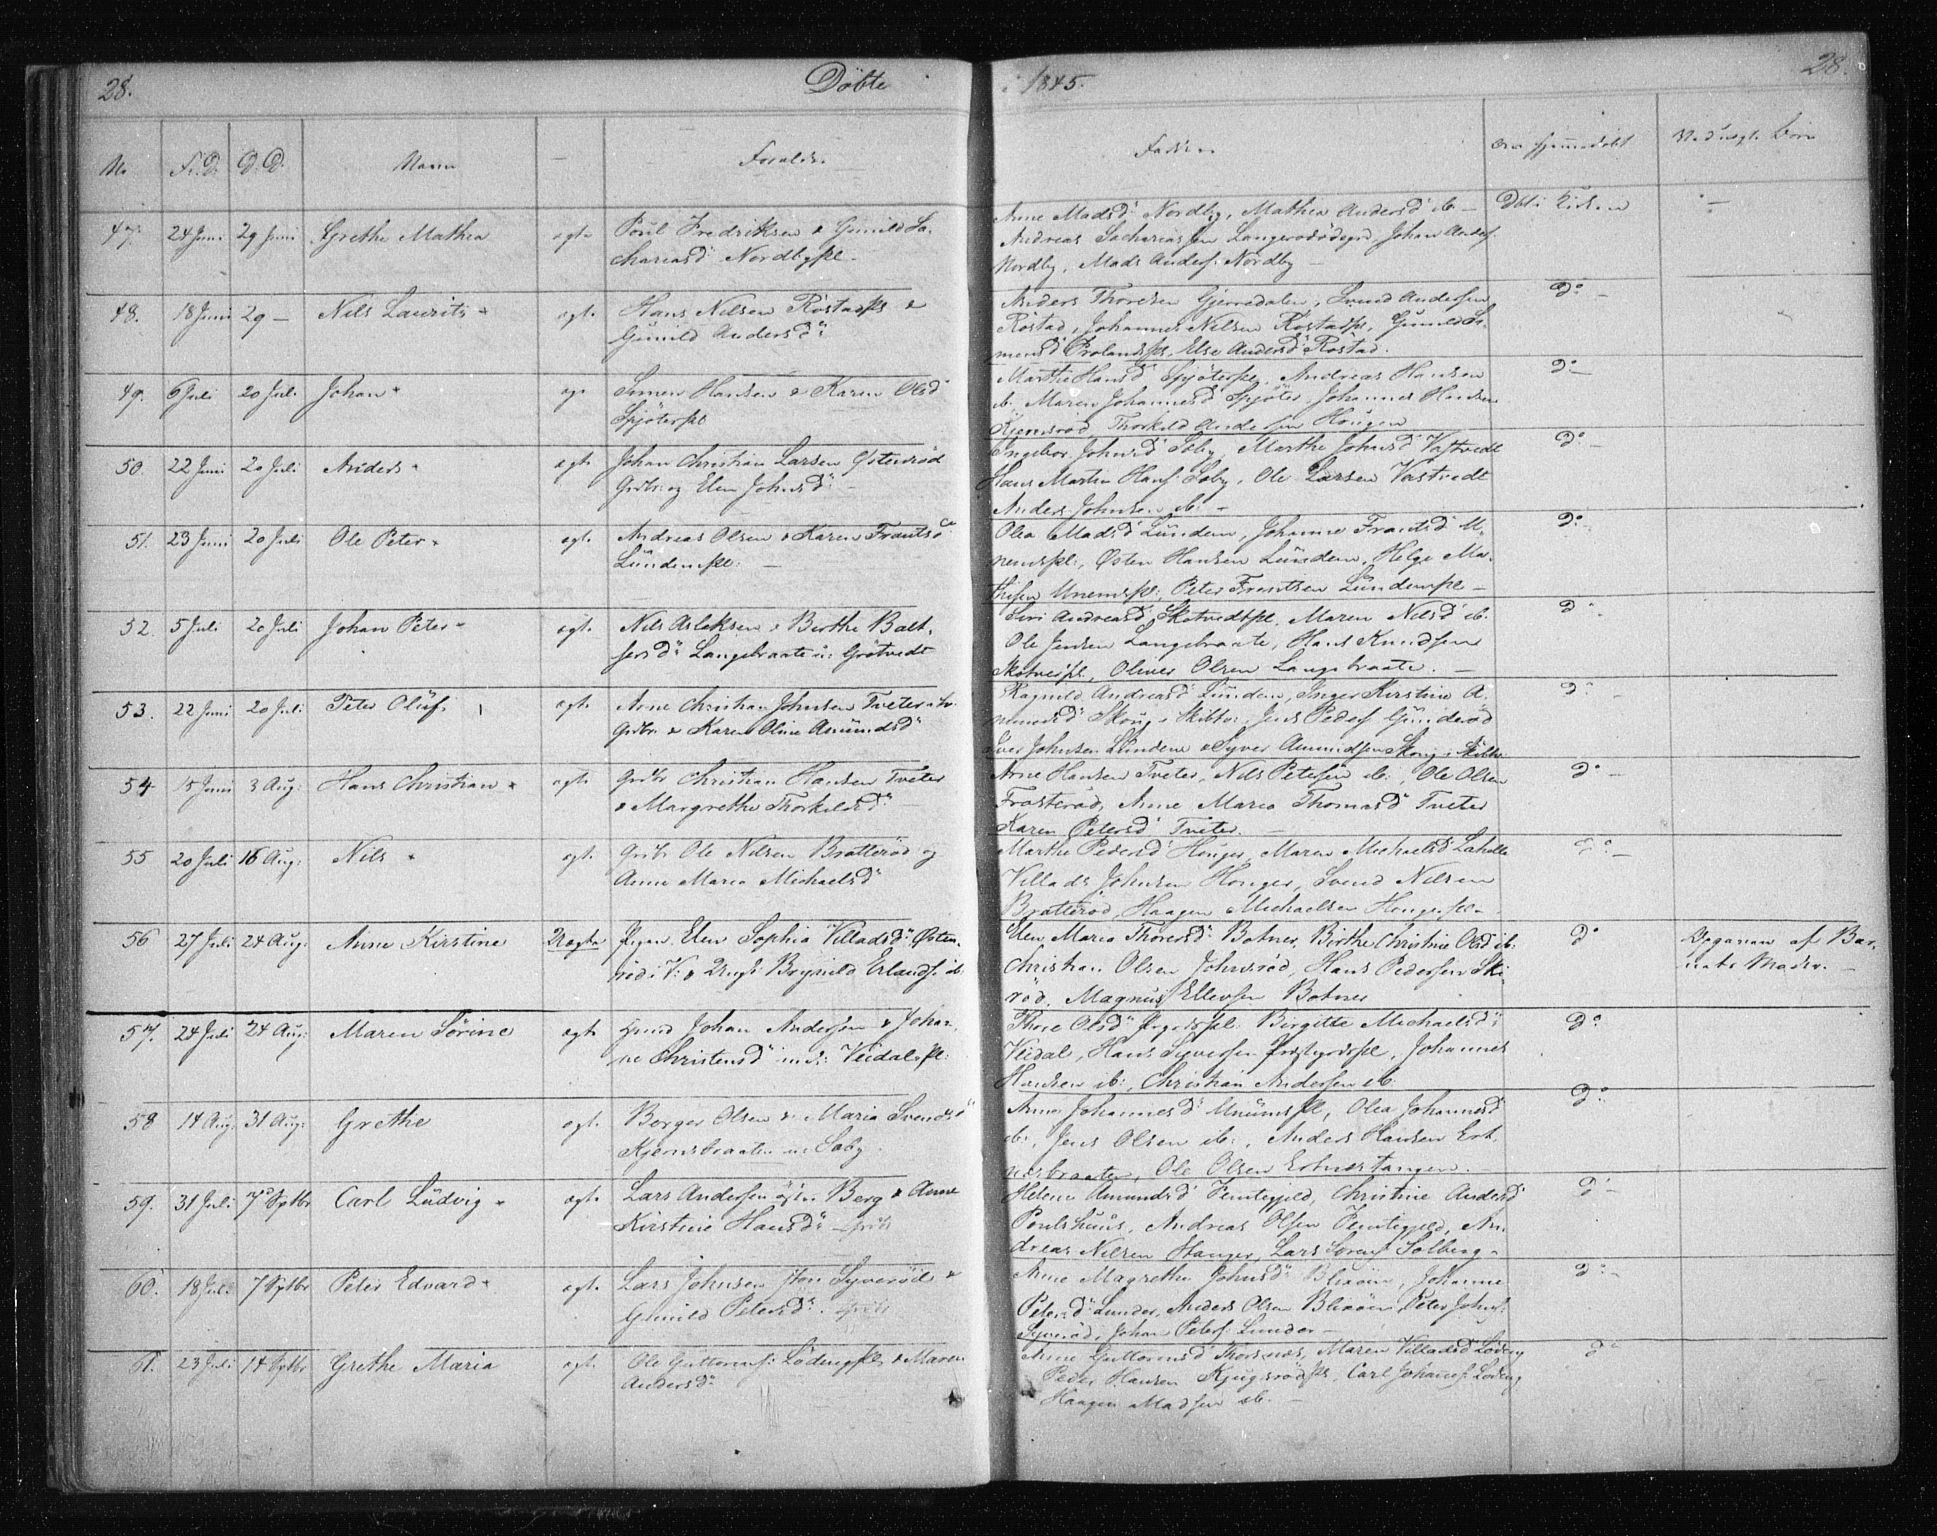 28.
Døbte
1845.
28.
No
F. D.
D. D.
Navn
Foræld.
Faddere
om hjemmedøbt
Ved uægte Børn
47.
24 Juni
29 Juni
Grethe Mathea
ægte
Poul Fredriksen & Gunild Sa-
chariasd Nordbypl.
Anne Madsd Nordby, Mathea Andersd ib. -
Andreas Sachariassen Langerødsdegrd, Johan Anders.
Nordby, Mads Anders: Nordby -
Døbt i Kirken
-
48.
18 Juni
29 -
Nils Laurits
ægt.
Hans Nilsen Röstadpl &
Gunild Andersd
Anders Thoresen Gjerredalen, Svend Andersen
Röstad, Johannes Nilsen Röstadpl, Gunild Si-
mensd Frolandspl, Else Andersd Röstad.
Do -
49.
6 Juli
20 Juli
Johan
æg.
Simen Hansen & Karen Olsd
Spjöterpl
Marthe Hansd Spjöterpl, Andreas Hansen
ib. Maren Johannesd Spjöter, Johannes Hansen
Kjensröd, Thorkild Andersen Hougen
Do -
50.
22 Juni
20 Juli
Anders
ægt.
Johan Christian Larsen Östenröd
Grdbr. og Elen Johnsd -
Ingebor Johnsd Saby, Marthe Johnsd Vastvedt
Hans Martin Hans. Saby, Ole Larsen Vastvedt
Anders Johnsen ib. -
Do -
51.
23 Juni
20 Juli
Ole Peter
ægt.
Andreas Olsen & Karen Frantsd
Lundenpl: -
Olea Madsd Lunden, Johanne Frantsd U-
nemspl:, Østen Hansen Lunden, Helge Ma-
thisen Unemspl:, Peter Frantsen Lundenpl -
Do
52.
5 Juli
20 Juli
Johan Peter
ægt.
Nils Aslaksen & Berthe Balt-
sersd Langebraate u: Grötvedt
Siri Andreasd Skotvedtpl. Maren Nilsd ib.
Ole Jensen Langebraate, Hans Knudsen
Skotvedpl, Oliver Olsen Langebraate. -
Do
53.
22 Juni
20 Juli
Peter Oluf
ægt.
Arne Christian Johnsen Tveter
Grdbr. & Karen Oline Amundsd
Ragnild Andreasd Lunden, Inger Kirstine A-
mundsd Skoug i Skibtv: Jens Peders Gunderöd
Iver Johnsen Lunden & Syver Amundsen Skoug i Skibtv
Do -
54
15 Juni
3 Aug:
Hans Christian
ægt.
Grdbr Christian Hansen Tveter
& Margrethe Thorkildsd
Arne Hansen Tveter, Nils Petersen ib:, Ole Olsen
Frosteröd, Anne Maria Thomasd Tveter
Karen Petersd Tveter. -
Do -
55
20 Juli
16 Aug:
Nils
ægt.
Grdbr Ole Nilsen Bratteröd og
Anne Maria Michaelsd
Marthe Pedersd Houger, Maren Michaelsd Laholle
Villads Johnsen Houger, Svend Nilsen
Bratteröd, Haagen Michaelsen Hougerpl -
Do -
56
27 Juli
24 Aug:
Anne Kirstine
Uægte
Pigen Elen Sophia Villadsd Østen-
röd i V: & Ungk: Brynild Erlands. ib:
Elen Maria Thoresd Botner, Birthe Christine Olsd ib:
Christian Olsen Johnsröd, Hans Pedersen Ski-
röd, Magnus Ellevsen Botner
Do
Opgaven af Bar-
nets Moder. -
57.
24 Juli
24 Aug:
Maren Sörine
ægte
Johan Andersen & Johan-
ne Christensd ind: Veidalspl:
Thore Olsd Prgrdspl: Birgitte Michaelsd
Veidal, Hans Syversen Prstgrdspl, Johannes
Hansen ib:, Christian Andersen ib.
Do
58
14 Aug.
31 Aug:
Grethe
ægt.
Borger Olsen & Maria Svendsd
Kjernsbraaten u: Saby
Anne Johannesd Unumspl, Olea Johannesd
ib., Jens Olsen ib:, Anders Hansen Ert-
nesbraaten, Ole Olsen Ertnestangen.
Do
59.
31 Juli
7 Sptbr
Carl Ludvig
ægt.
Lars Andersen Berg & Anne
Kirstine Hansd -
Helene Amundsd Femtegjeld, Christine Andersd
Poulshuus, Andreas Olsen Femtegjeld, An-
dreas Nilsen Houger, Lars Sörens Solberg -
Do
60.
18 Juli
7 Sptbr
Peter Edvard
ægt.
Lars Johnsen Syveröd &
Gunild Petersd.
Anne Magrethe Johnsd Blixöen, Johanne
Petersd Lunder, Anders Olsen Blixöen, Peter Johns:
Syveröd, Johan Peters: Lunder -
Do -
61.
23 Juli
14 Sptbr
Grethe Maria
ægt.
Ole Guttorms: Lödengpl, & Maren
Andersd
Anne Guttormsd Thorsnæs, Maren Villadsd Lödeng
Peder Hansen Kjugerödpl, Carl Johans: Lödeng
Haagen Madsen ib. -
Do